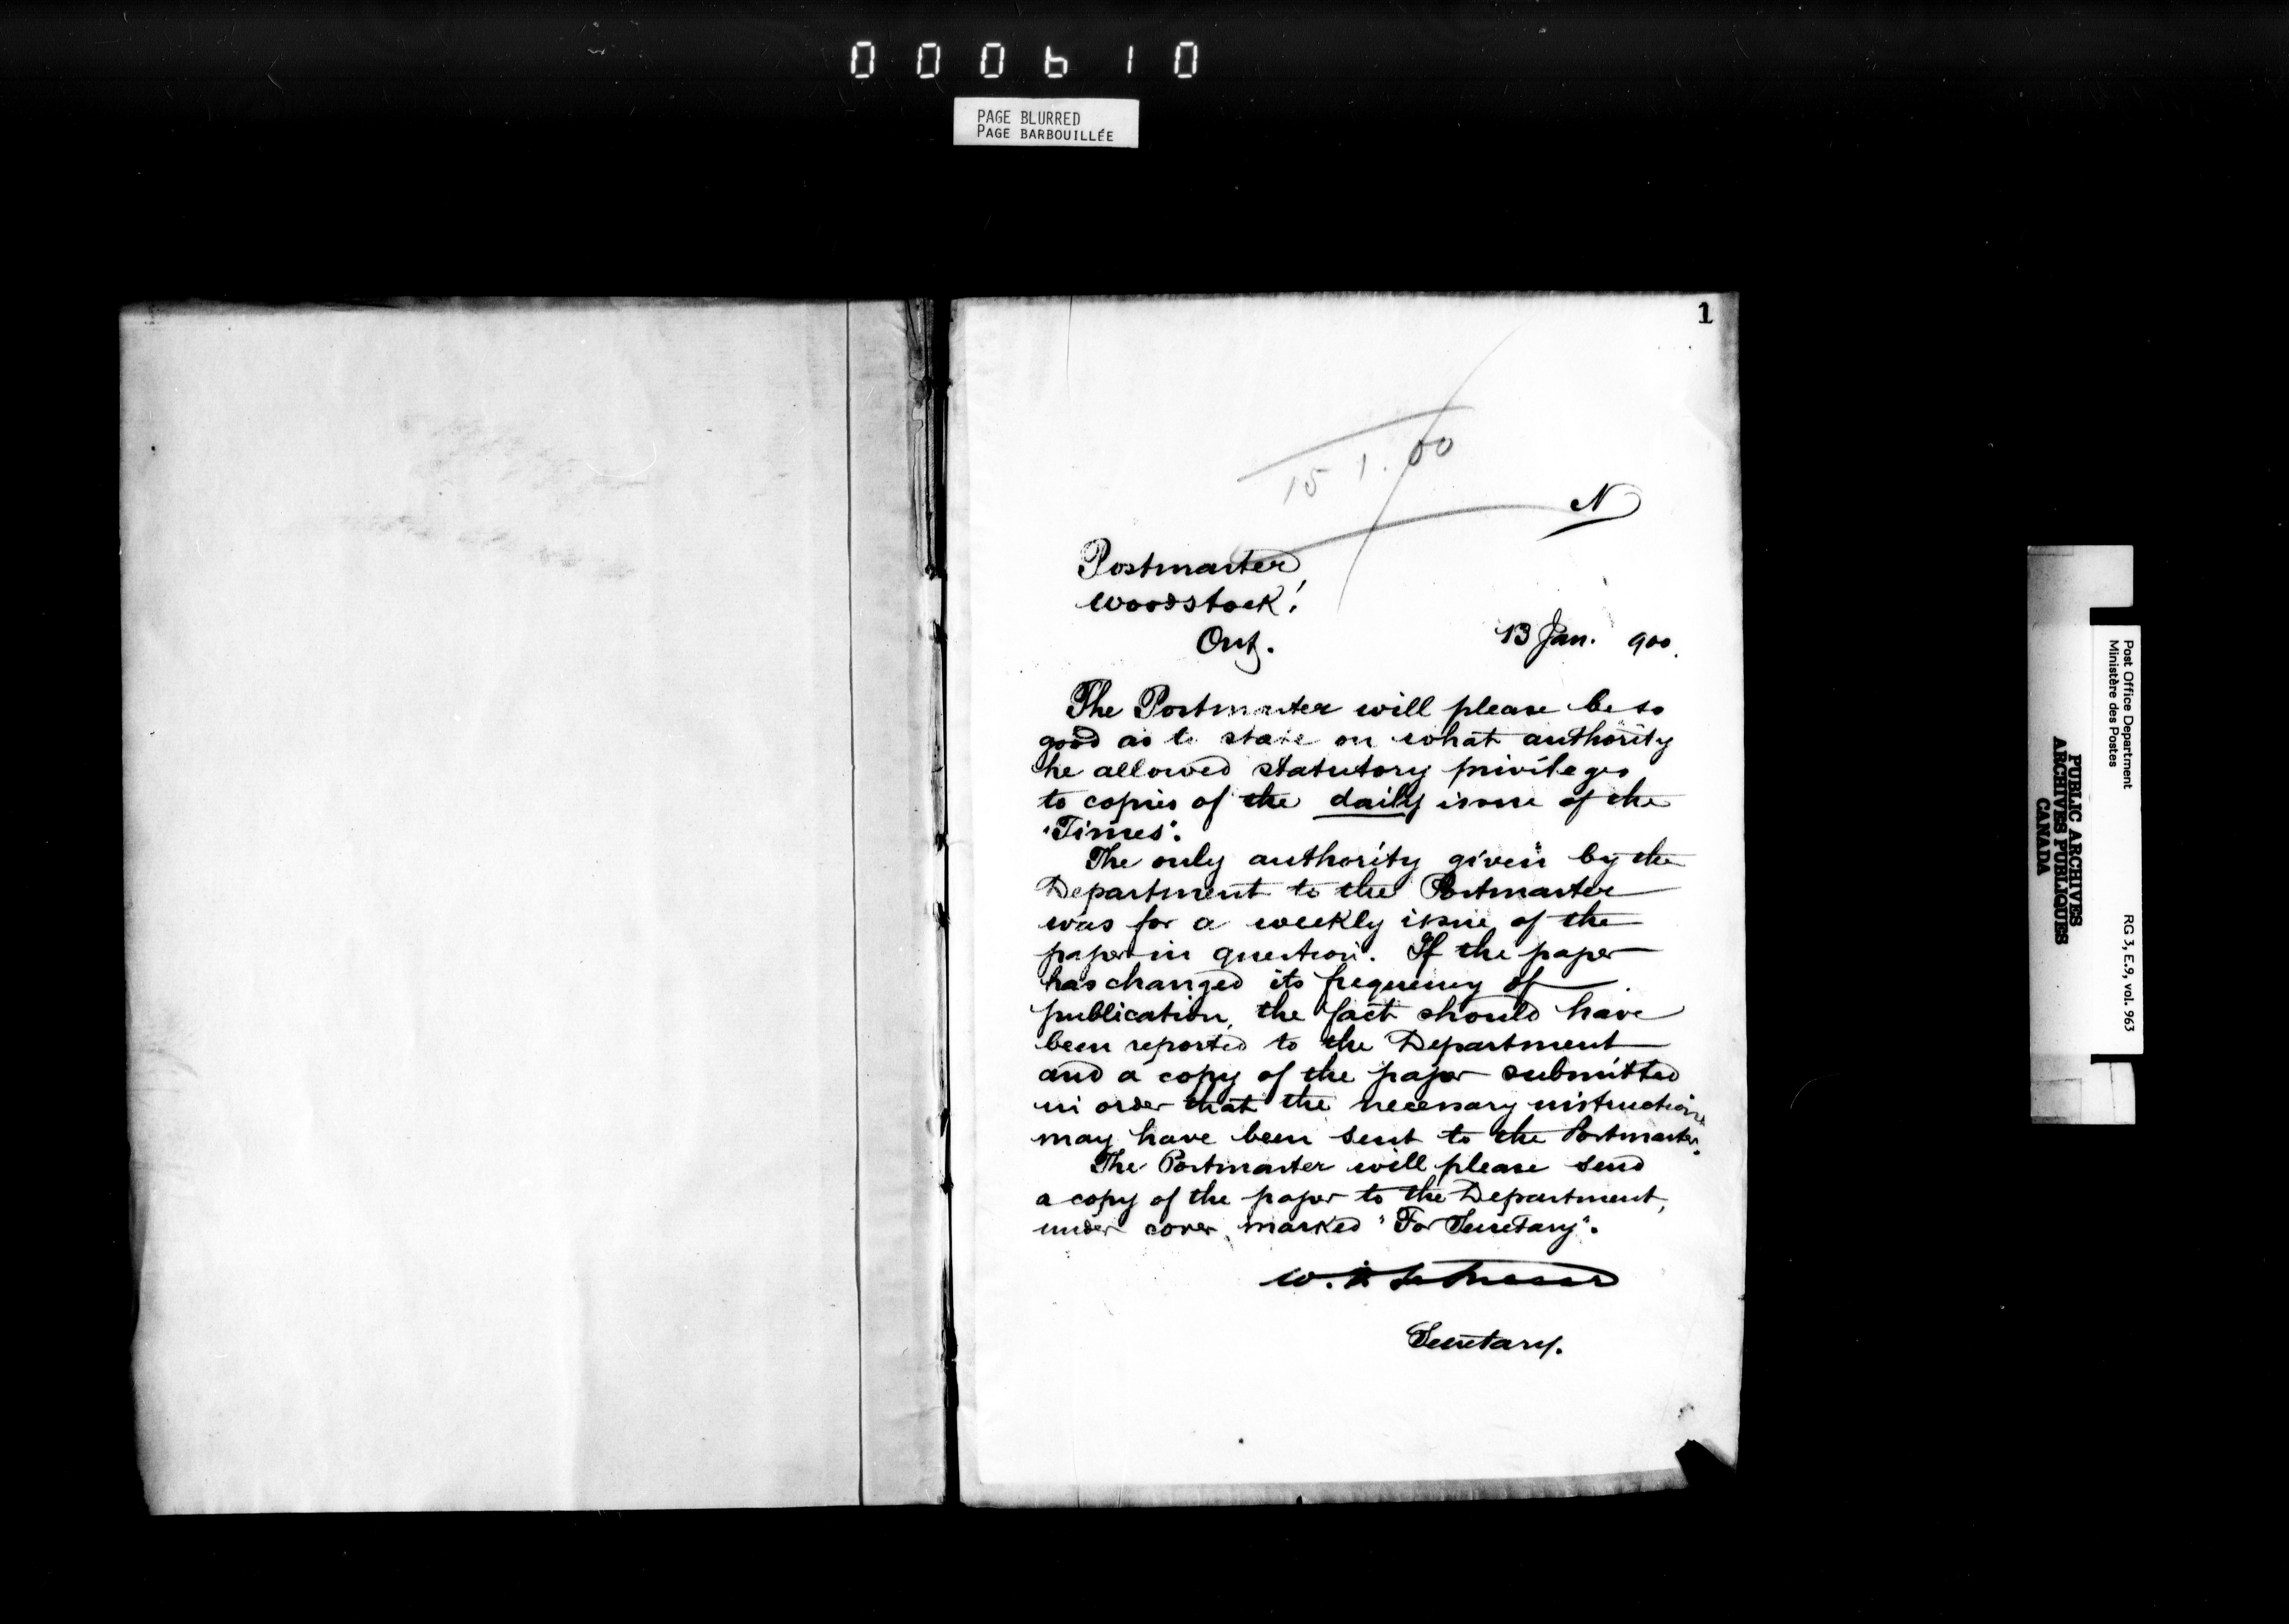 000610
PAGE BLURRED
PAGE BARBOUILLÉE
1
15 1. 00
N
Postmaster
Woodstock!
Ont.
13 Jan. 900.
The Postmaster will please be so
good as to state on what authority
he allowed statutory privileges
to copies of the daily issue of the
"Times".
The only authority given by the
Department to the Postmaster
was for a weekly issue of the
paper in question. If the paper
has changed its frequency of
publication, the fact should have
been reported to the Department
and a copy of the paper submitted
in order that the necessary instructions
may have been sent to the Postmaster.
The Postmaster will please send
a copy of the paper to the Department,
under cover marked "For Secretary".
W.
Secretary.
Post Office Department
Ministère des Postes
RG 3, E.9, vol. 963
PUBLIC ARCHIVES
ARCHIVES PUBLIQUES
CANADA